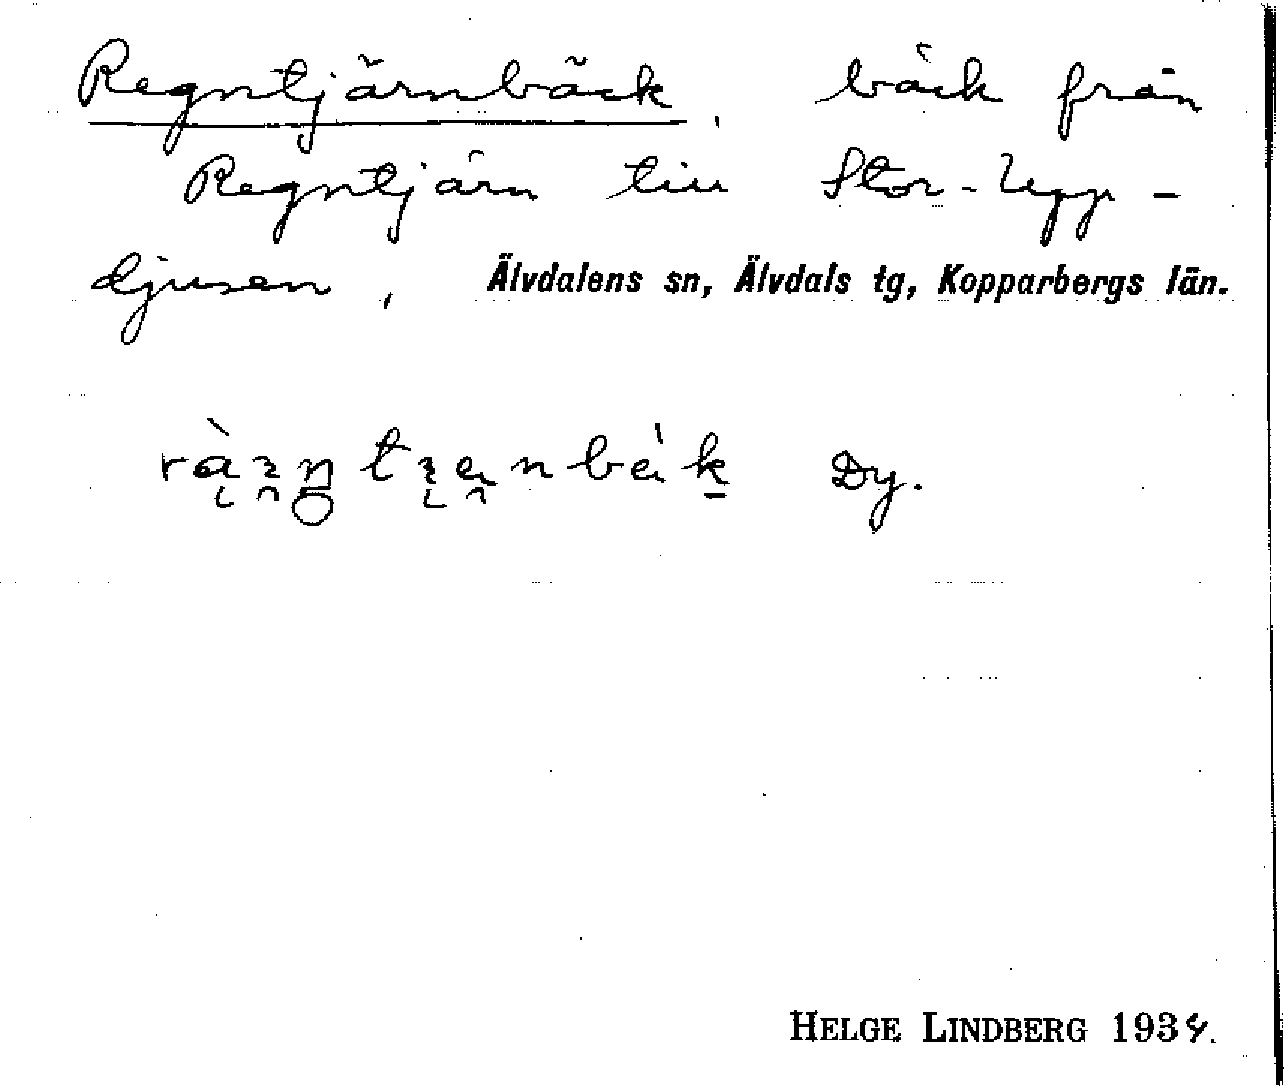 Regntjärnbäck, bäck från
Regntjärn till Stor-Upp-
djusen, Älvdalens sn, Älvdals tg, Kopparbergs län.
Dy.
HELGE LINDBERG 1934.